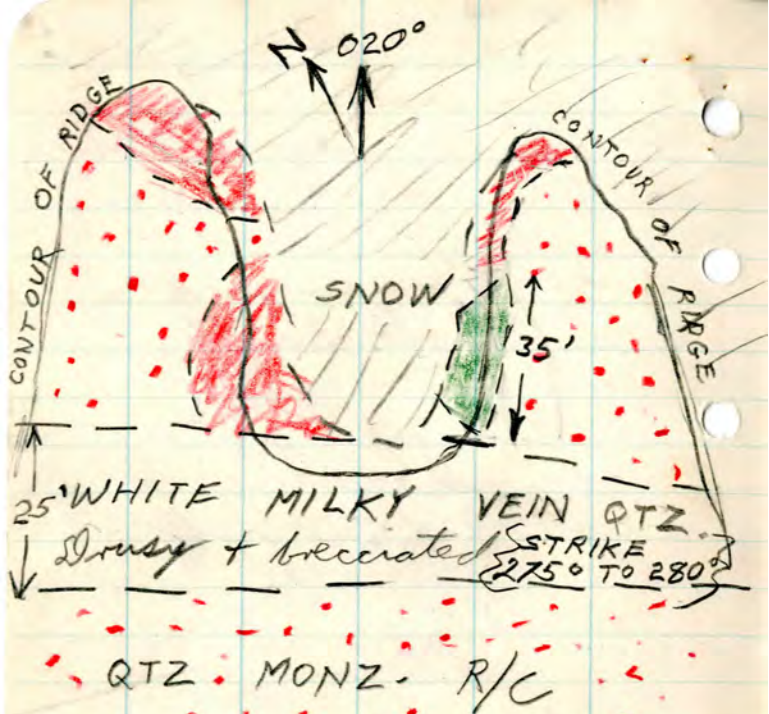 N 020°
CONTOUR OF RIDGE
CONTOUR OF RIDGE
SNOW
35'
25' WHITE MILKY VEIN QTZ.
Drusy + brecciated { STRIKE
{ 275° TO 280° }
QTZ. MONZ. R/C